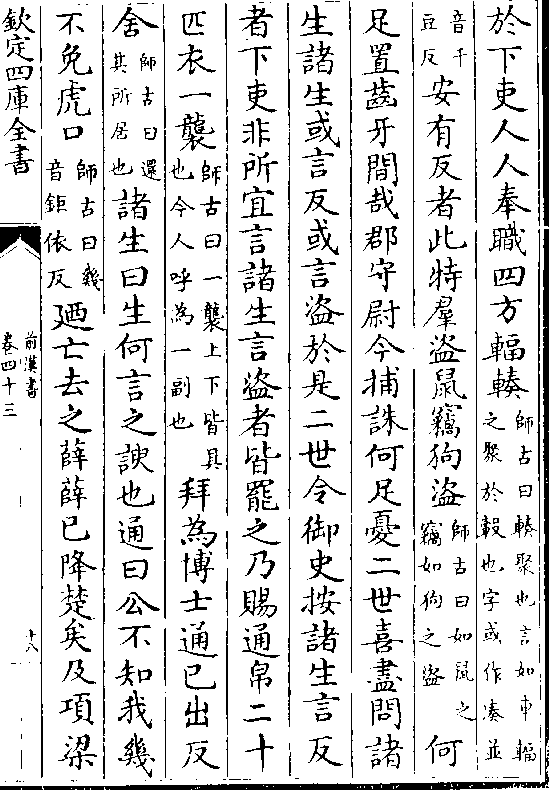 於下吏人人奉職四方輻輳師古曰輳聚也言如車輻之聚於轂也字或作湊並
音千豆反安有反者此特羣盜鼠竊狗盜師古曰如鼠之竊如狗之盜何
足置齒牙間哉郡守尉今捕誅何足憂二世喜盡問諸
生諸生或言反或言盜於是二世令御史按諸生言反
者下吏非所宜言諸生言盜者皆罷之乃賜通帛二十
匹衣一襲師古曰一襲上下皆具也今人呼為一副也拜為博士通已出反
舍師古曰還其所居也諸生曰生何言之諛也通曰公不知我幾
不免虎口師古曰幾音鉅依反廼亡去之薛薛已降楚矣及項梁
欽定四庫全書
前漢書
卷四十三
十八